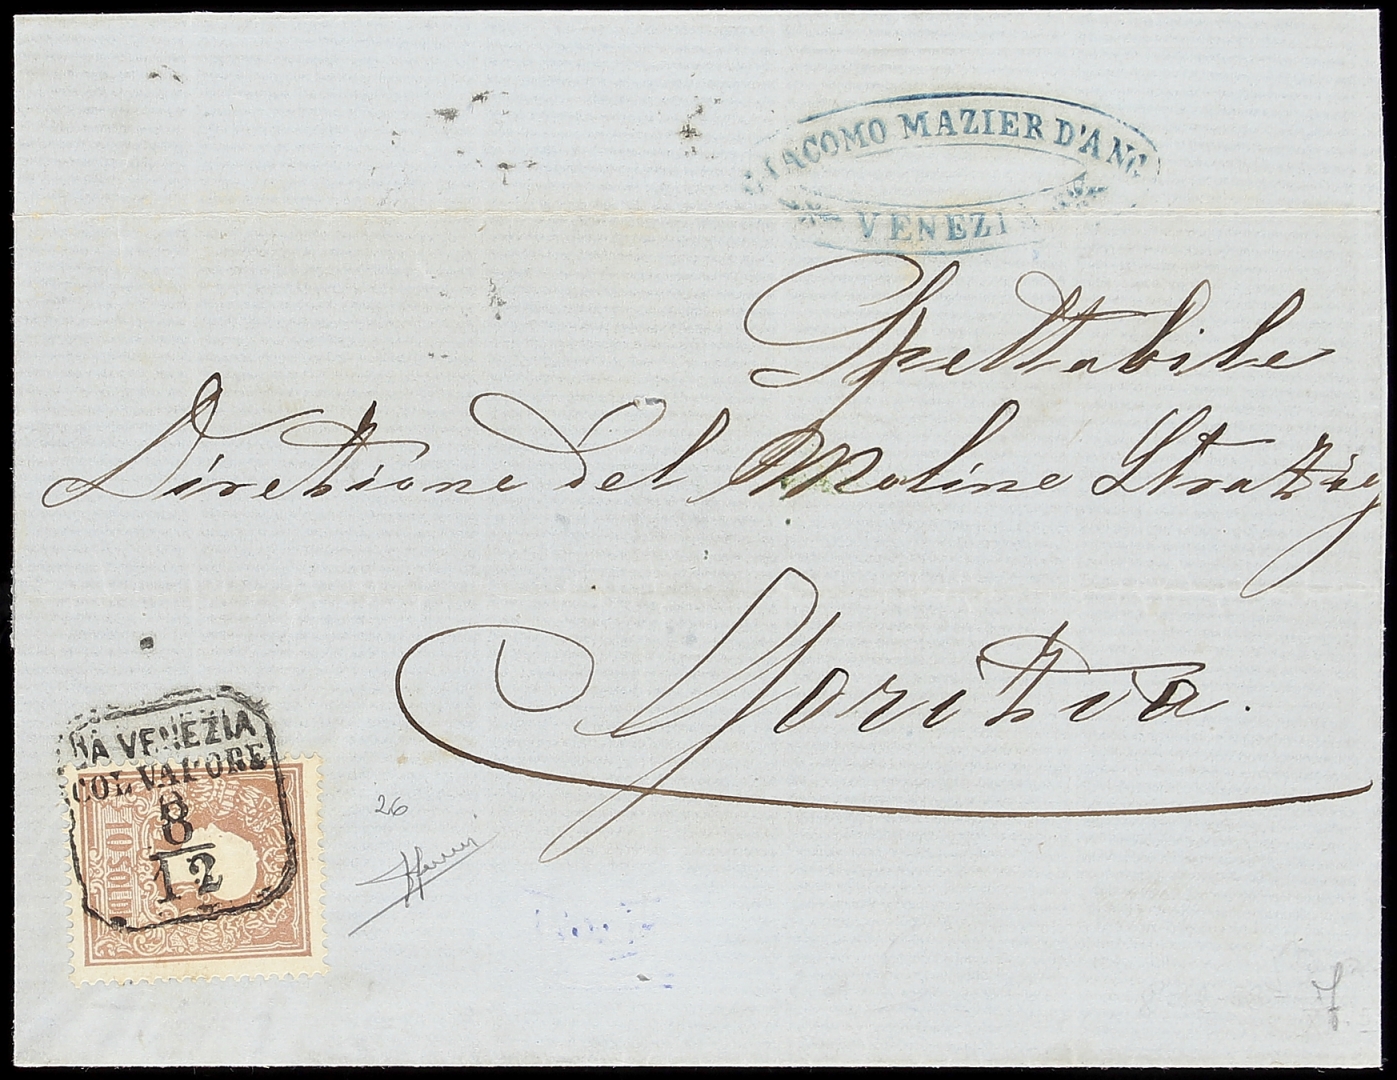 GIACOMO MAZIER D'ANG
VENEZIA
Spettabile
Diretione del Moline Stratzig
Goritia.
DA VENEZIA
COL VAPORE
8
12
10 SOLDI
26